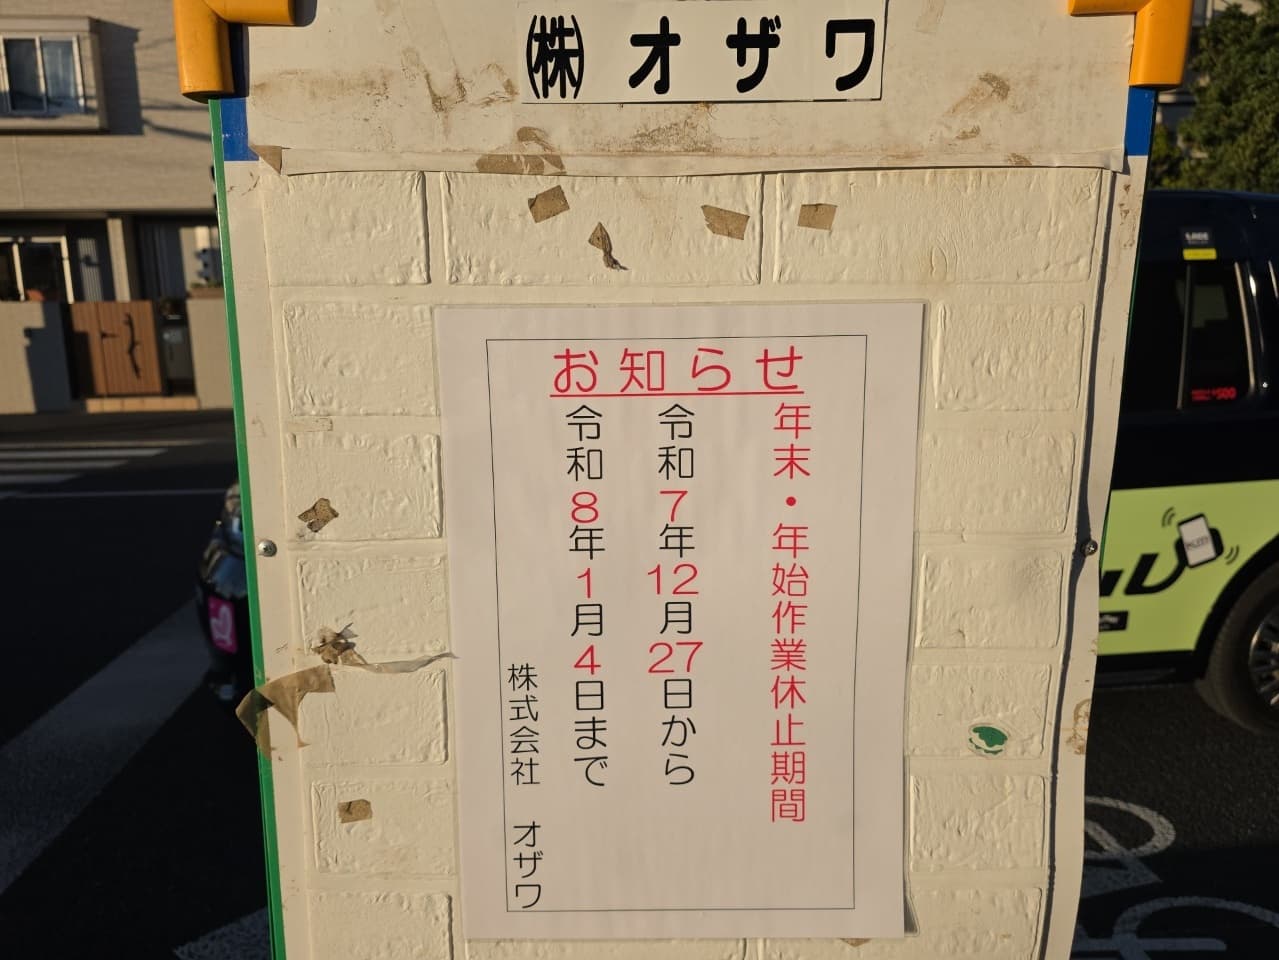 ㈱オザワ
お知らせ
年末・年始作業休止期間
令和7年12月27日から
令和8年1月4日まで
株式会社 オザワ